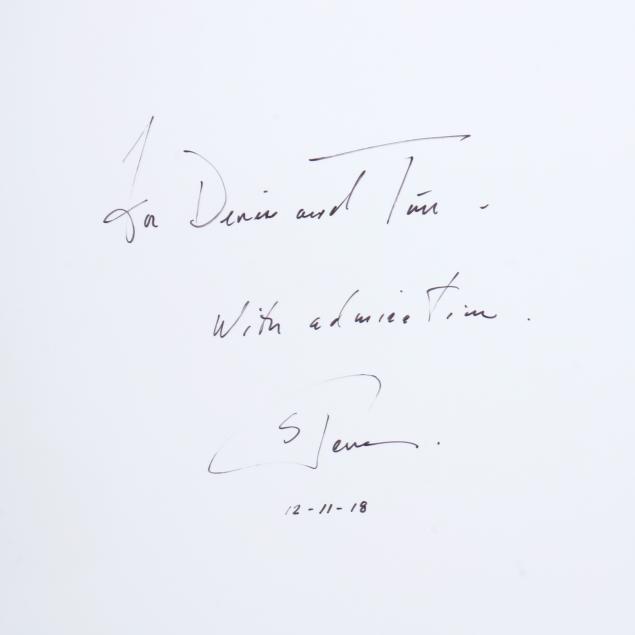 For Denise and Tim -
With admiration.
Steve.
12-11-18